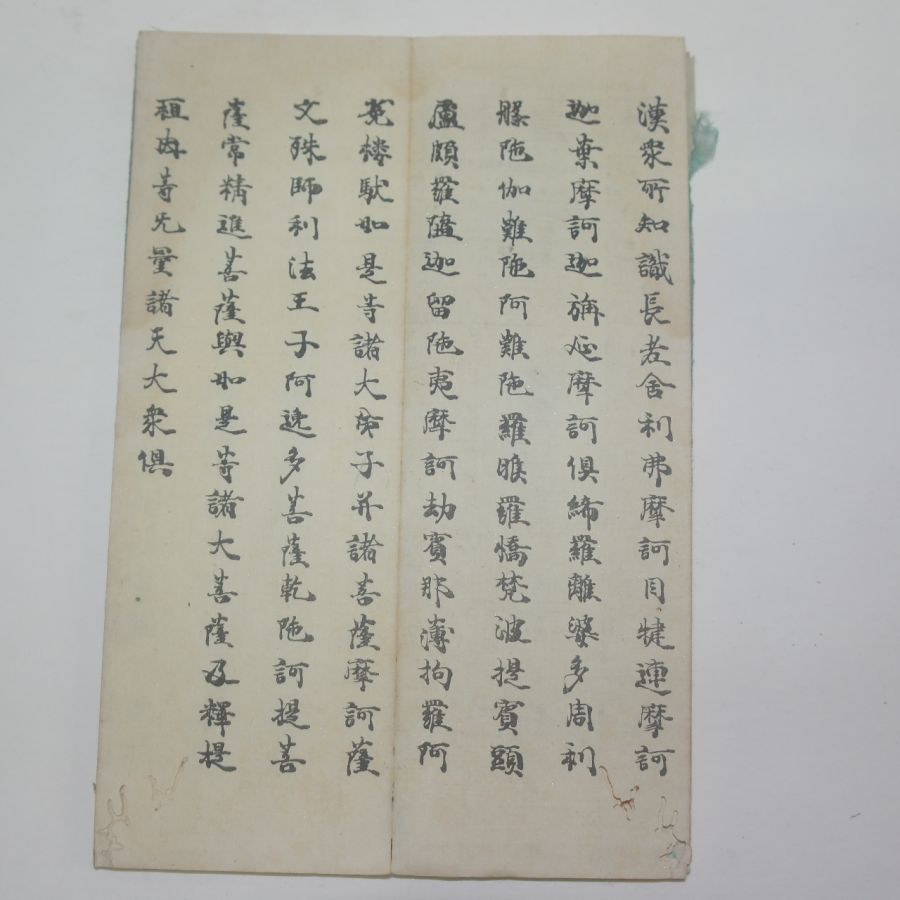 漢衆所知識長老舍利弗摩訶目犍連摩訶
迦葉摩訶迦旃延摩訶俱絺羅離婆多周利
槃陁伽難陁阿難陁羅睺羅憍梵波提賓頭
盧頗羅隨迦留陁夷摩訶劫賓那薄拘羅阿
㝹樓馱如是等諸大弟子并諸菩薩摩訶薩
文殊師利法王子阿逸多菩薩乾陁訶提菩
薩常精進菩薩與如是等諸大菩薩及釋提
桓因等无量諸天大衆俱